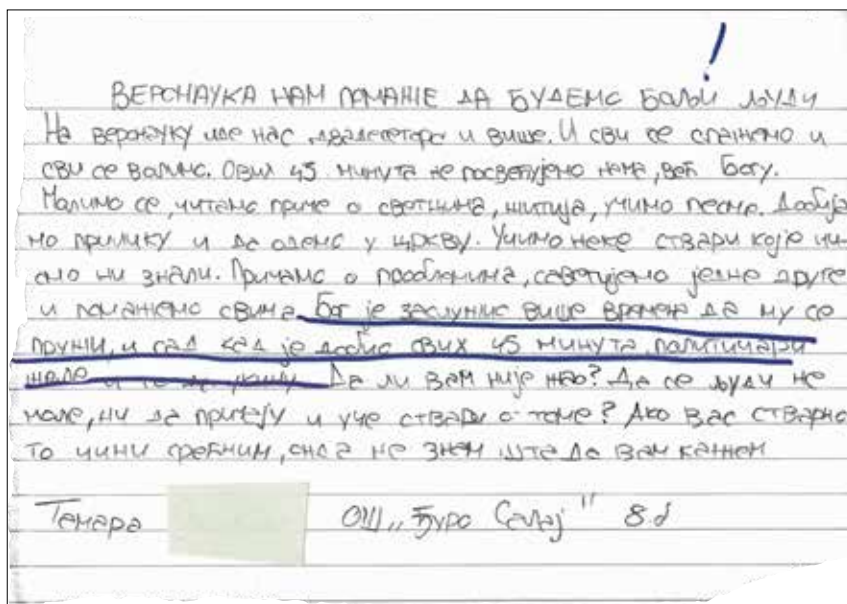 !
ВЕРОНАУКА НАМ ПОМАЖЕ ДА БУДЕМО БОЉИ ЉУДИ
На веронауку иде нас двадесеторо и више. И сви се слажемо и
сви се волимо. Ових 45 минута не посвећујемо нама, већ Богу.
Молимо се, читамо приче о свецима, житија, учимо песме. Добија
мо прилику и да одемо у цркву. Учимо неке ствари које ни
смо ни знали. Причамо о проблемима, саветујемо једне друге
и помажемо свима. Бог је заслужио више времена да му се
пружи, и сад кад је добио ових 45 минута, политичари
желе и то да укину. Да ли вам није жао? Да се људи не
моле, ни да причају и уче ствари о томе? Ако вас стварно
то чини срећним, онда не знам шта да вам кажем
Тамара ОШ „Ђуро Салај" 8д